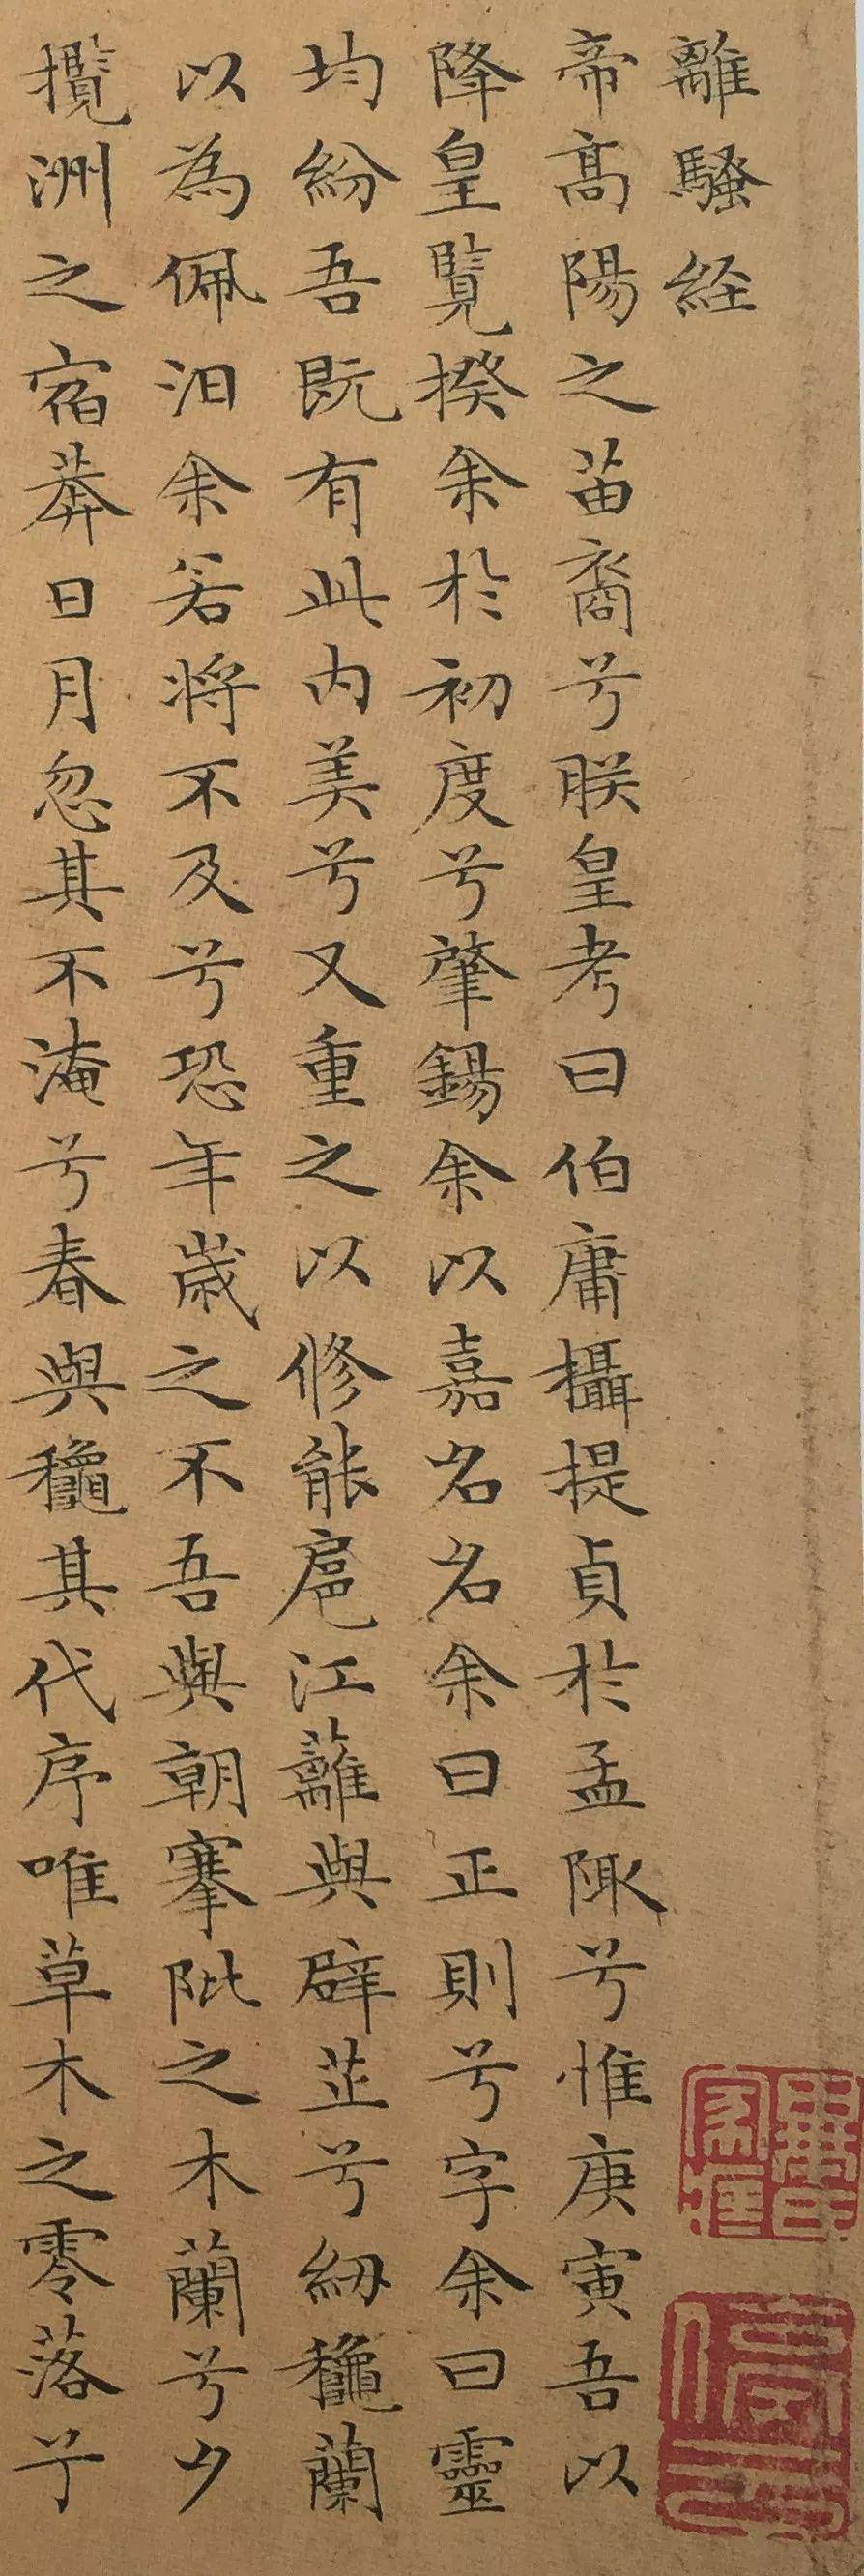 離騷経
帝高陽之苗裔兮朕皇考曰伯庸攝提貞於孟陬兮惟庚寅吾以
降皇覽揆余於初度兮肇錫余以嘉名名余曰正則兮字余曰靈
均紛吾既有此內美兮又重之以修能扈江蘺與辟芷兮紉龝蘭
以為佩汨余若將不及兮恐年歲之不吾與朝搴阰之木蘭兮夕
攬洲之宿莽日月忽其不淹兮春與龝其代序唯草木之零落兮